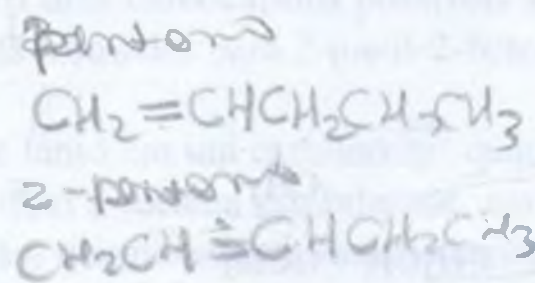 penteno
CH2=CHCH2CH2CH3
2-penteno
CH2CH=CHCH2CH3